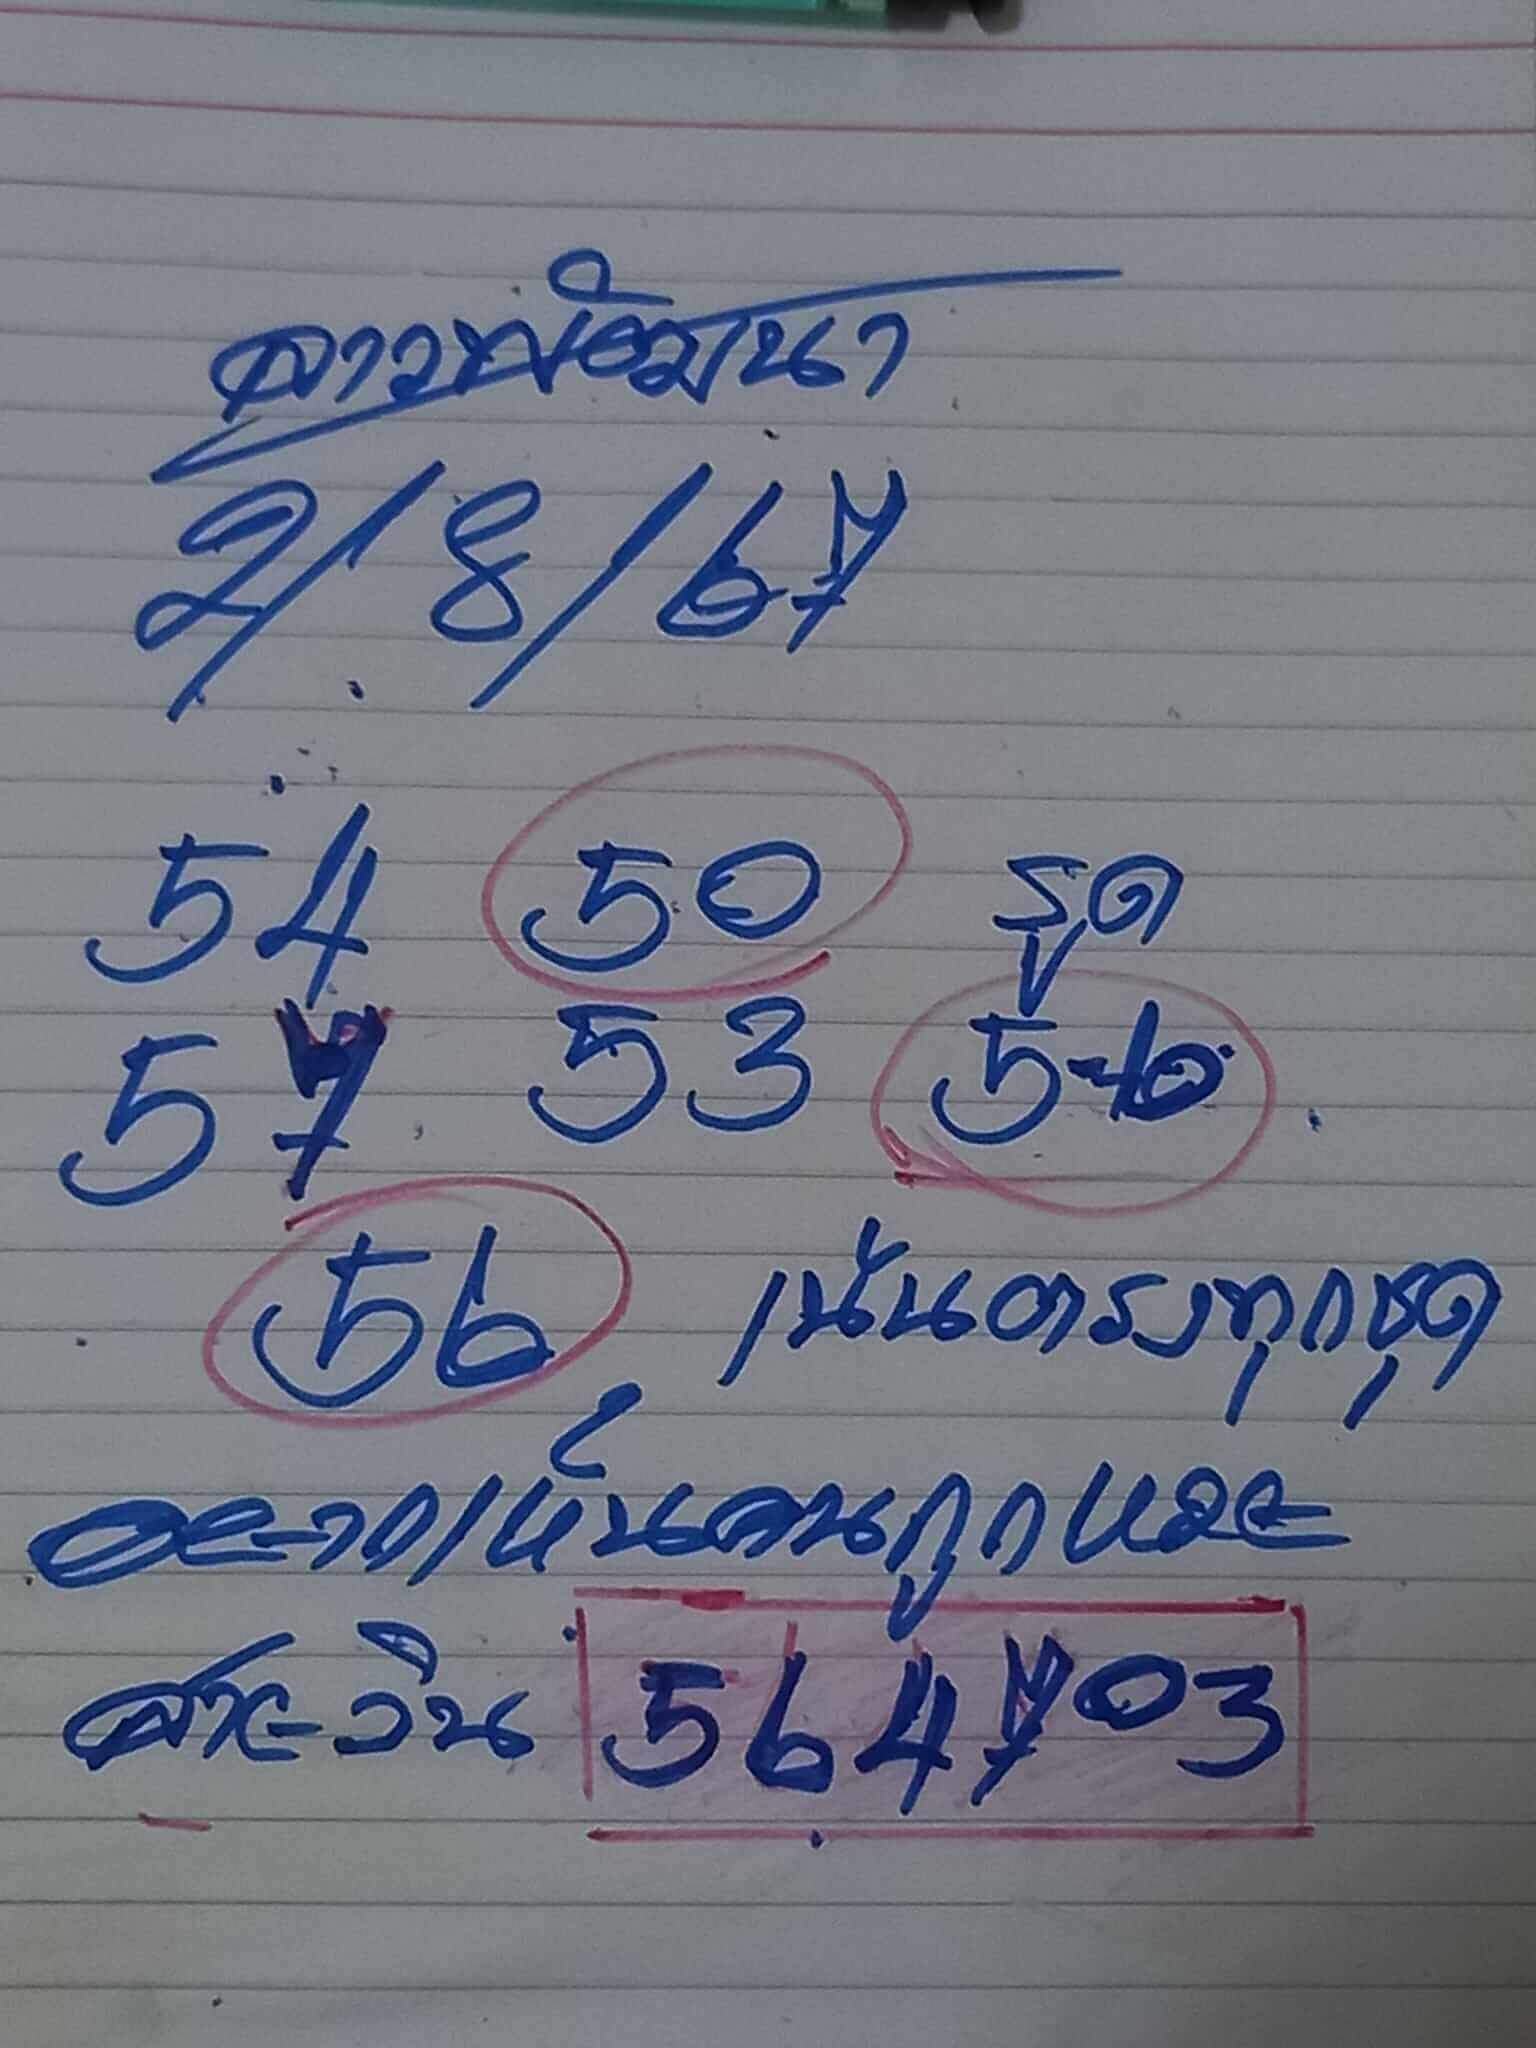 ลาวพัฒนา
2/8/67
54 50 รูด
57 53 5-10
56 เน้นตรงทุกชุด
อยากเห็นคนถูกเยอะ
สายวิน 564703